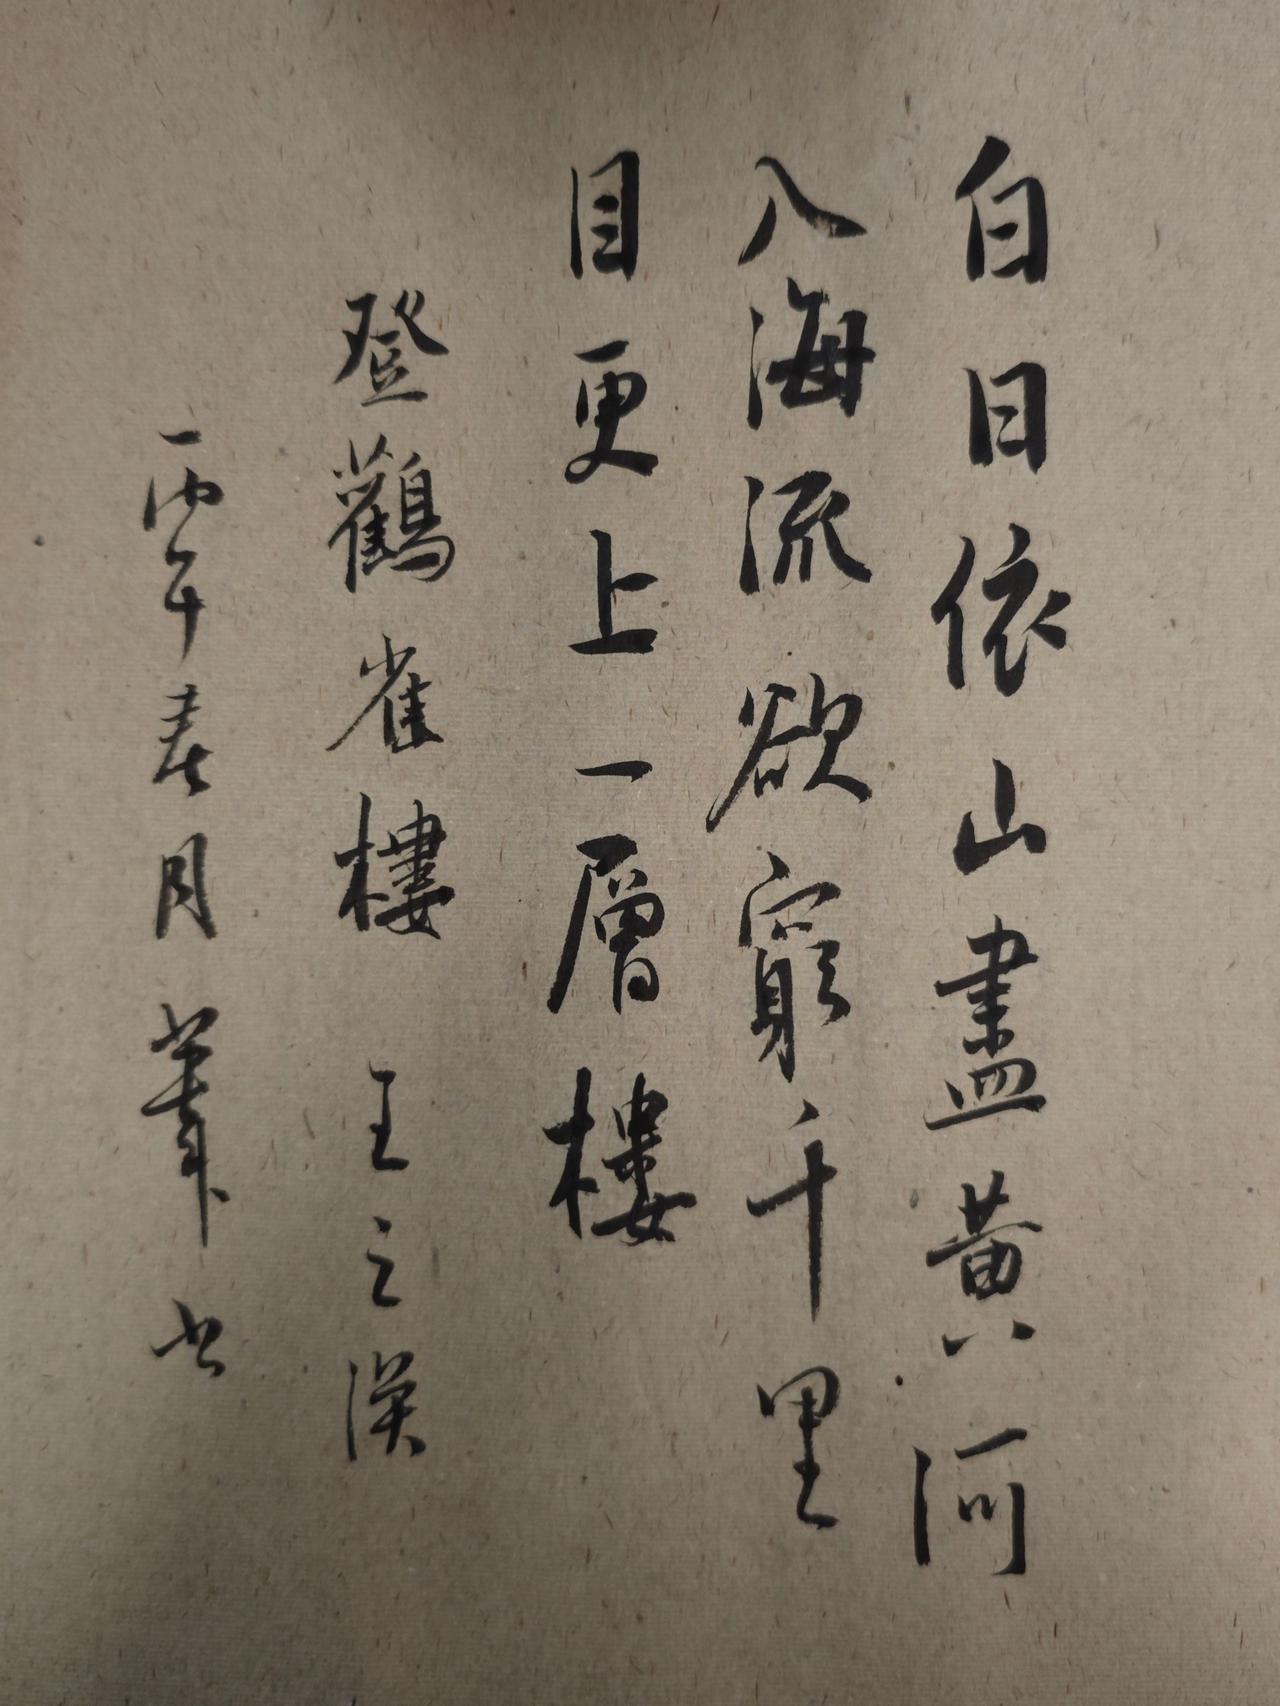 白日依山盡黄河
入海流欲窮千里
目更上一層樓
登鸛雀樓 王之渙
丙午春月 肇书